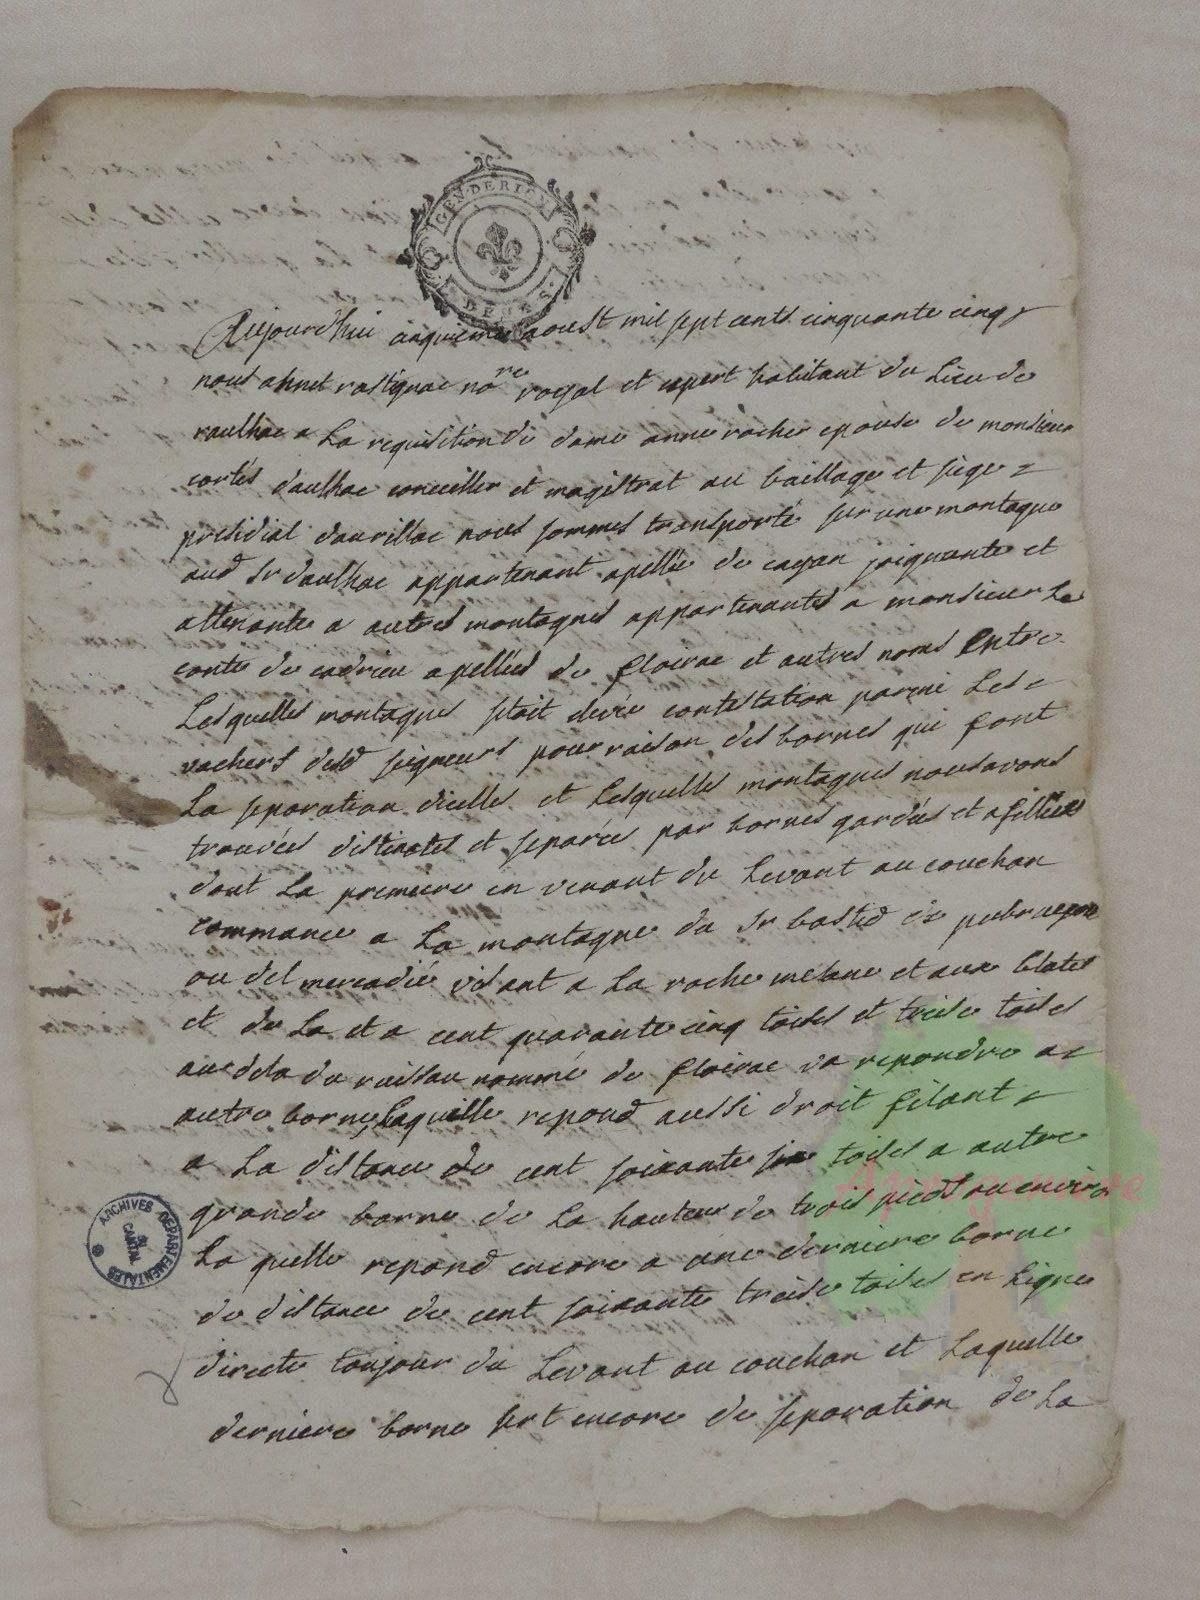 GEN. DE RIOM
DE
Aujourd'hui cinquieme aoust mil sept cents cinquante cinq
nous ahnet rastignac nore royal et expert habitant du lieu de
raulhac a la requisition de dame anne roche epouse de monsieur
cortés daulhac conseiller et magistrat au baillage et siege
presidial daurillac nous sommes transporté sur une montagne
aud sr daulhac appartenant apellée de cayan joignante et
attenante a autres montagnes appartenantes a monsieur le
conte de cadrieu apellées de floirac et autres noms Entre
Lesquelles montagnes setoit elevée contestation parmi les
vachers desd seigneurs pour raison des bornes qui font
la separation dicelles et lesquelles montagnes nous avons
trouvées distinctes et separées par bornes gardées et
dont la premiere en venant du levant au couchan
commance a la montagne du sr bastid de
ou del mercadié visant a la roche melane et aux blates
et de la et a cent quarante cinq toises et treise toises
audela du ruissau nommé de floirac va repondre a
autre borne, laquelle repond aussi droit filant
a la distance de cent soixante six toises a autre
grande borne de la hauteur de trois pieds ou environ
la quelle repond encore a une derniere borne
de distance de cent soixante treise toises en ligne
directe toujour du levant au couchan et laquelle
derniere borne sert encore de separation de la
ARCHIVES DEPARTEMENTALES
DU
CANTAL
Apprgeneve